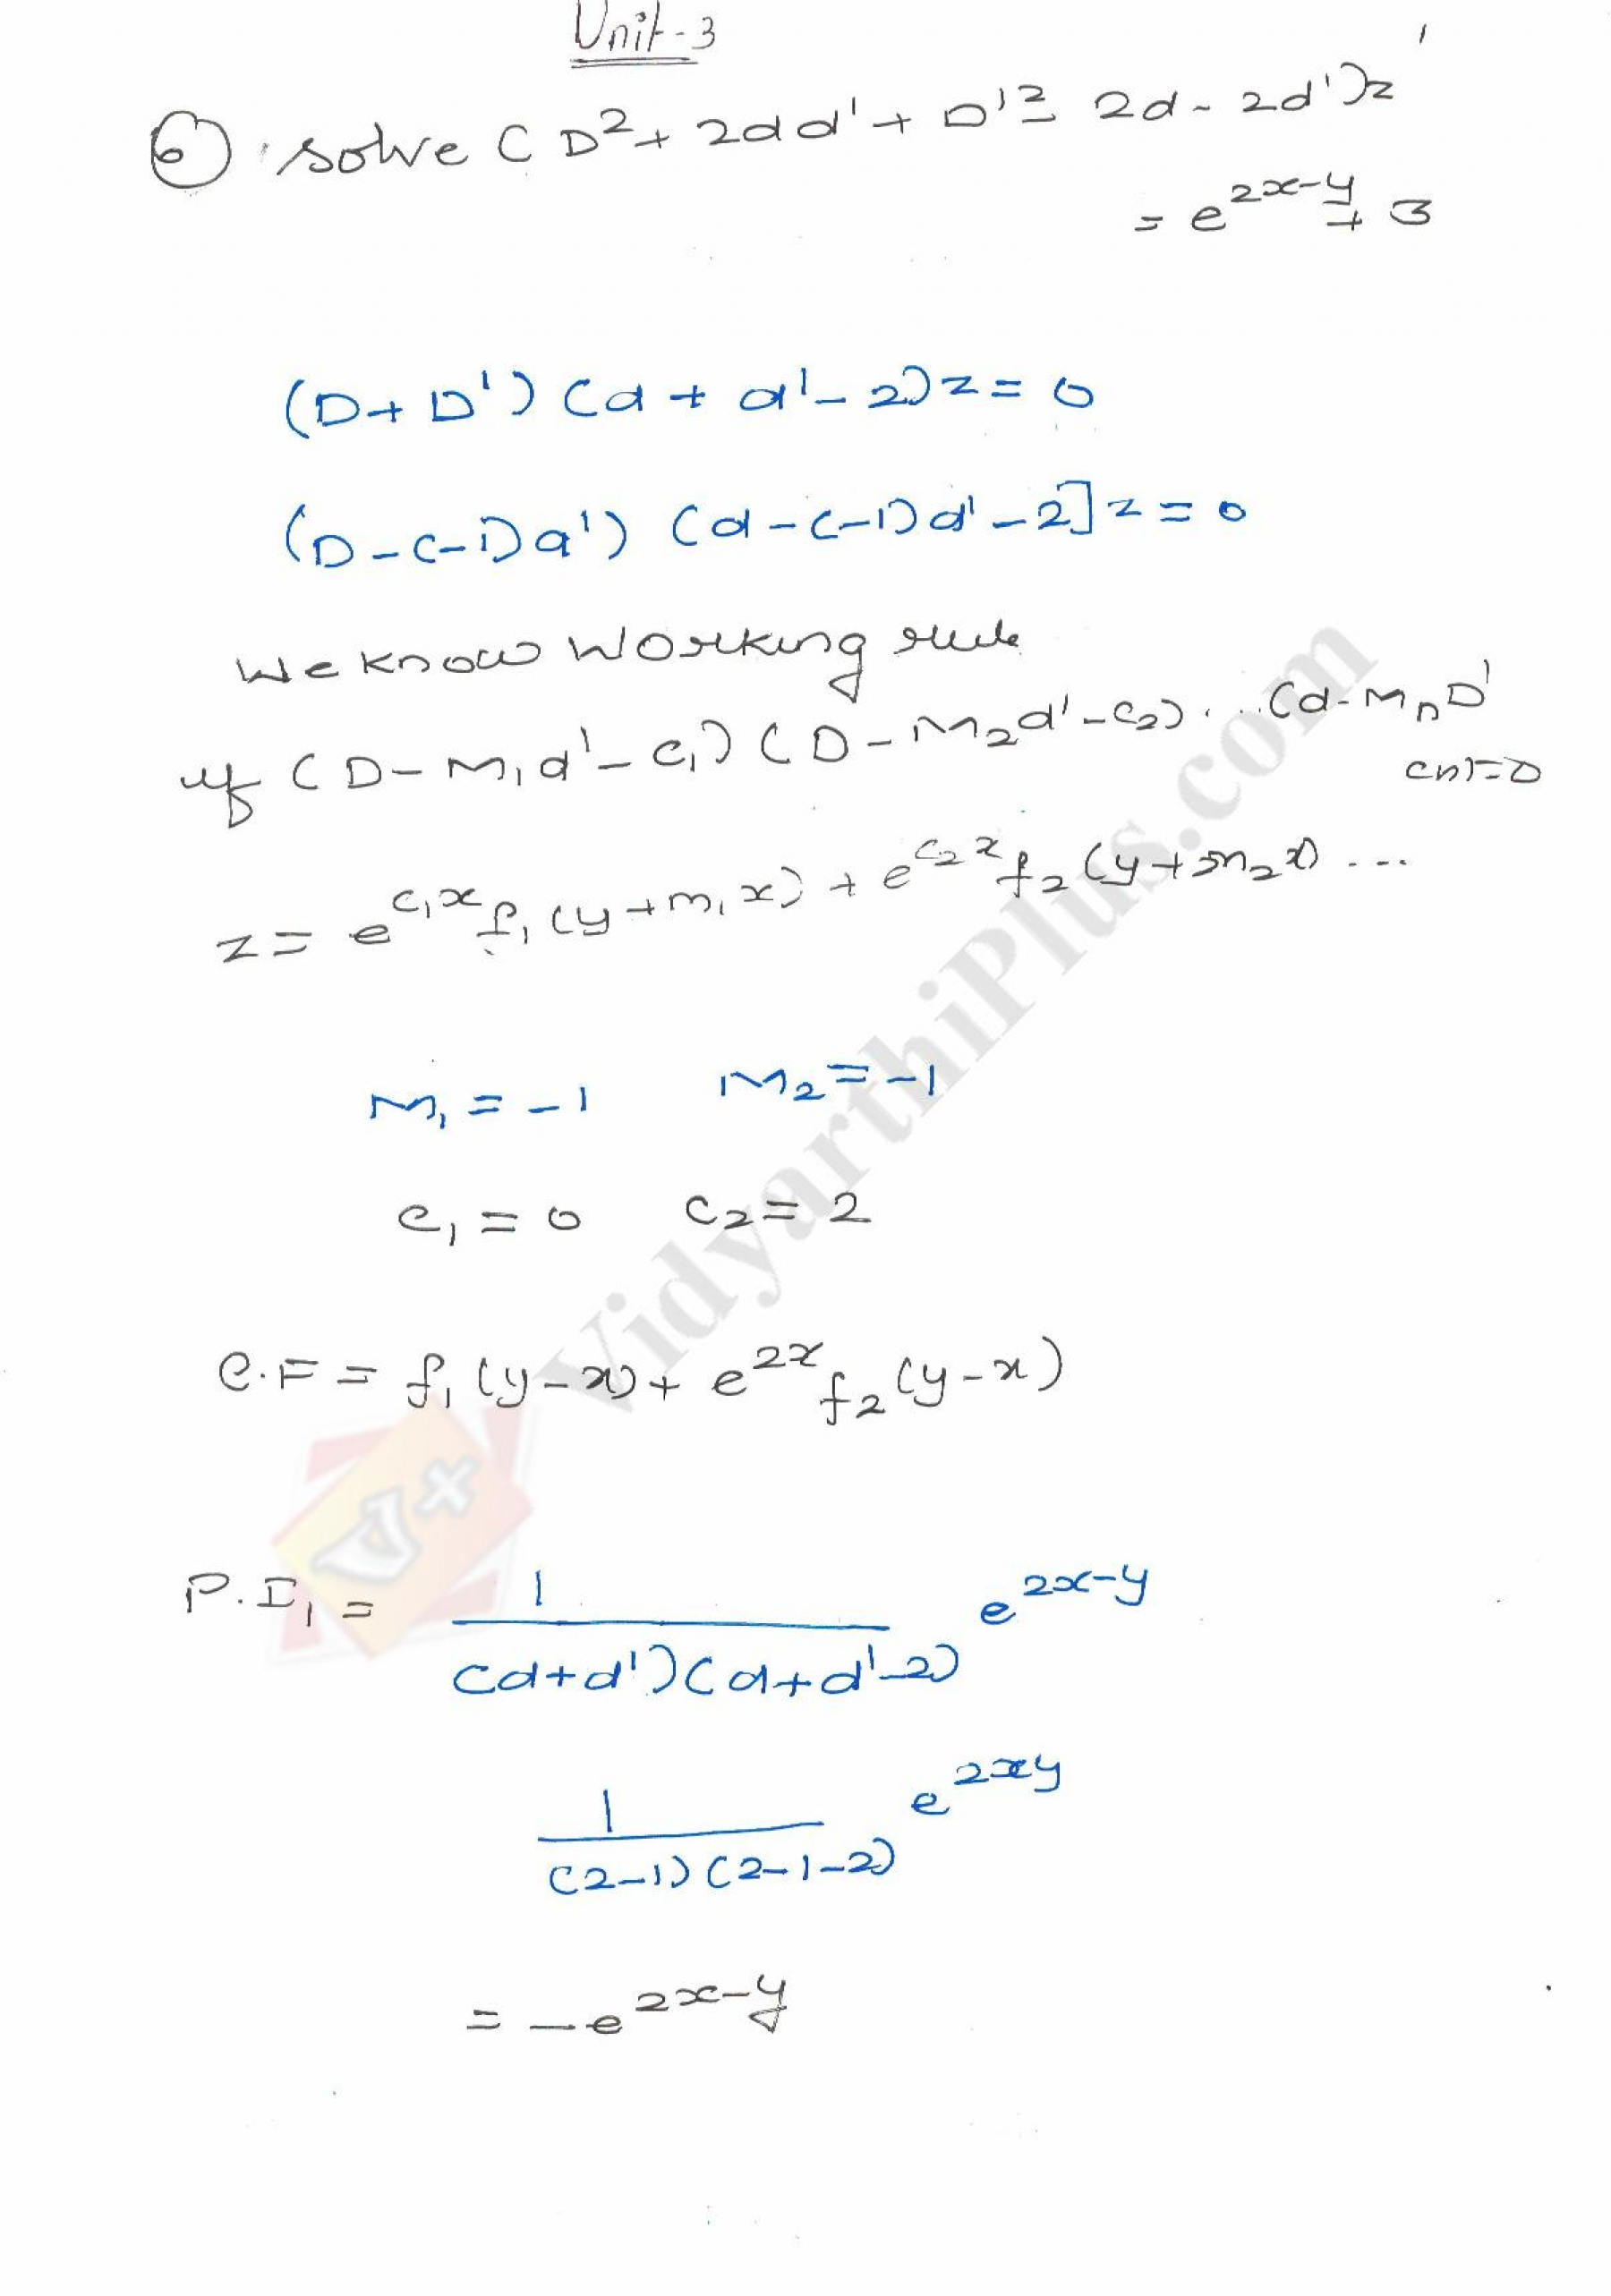 Unit-3
6. solve (D²+ 2dd'+ D'²- 2d- 2d')z
= e^{2x-y} + 3
(D+D') (d + d'-2)z=0
(D-(-1)d') (d-(-1)d'-2]z=0
We know Working rule
if (D-M₁d'-c₁) (D-M₂d'-c₂)...(d-MnD'
cn)=0
z= e^{c₁x}f₁(y+m₁x) + e^{c₂x}f₂(y+m₂x) ...
M₁ = -1 M₂ = -1
c₁ = 0 c₂= 2
C.F = f₁(y-x)+ e^{2x}f₂(y-x)
P.I₁ = 1 e^{2x-y}
(d+d')(d+d'-2)
1 e^{2xy}
(2-1)(2-1-2)
= -e^{2x-y}
VidyarthiPlus.com
V+